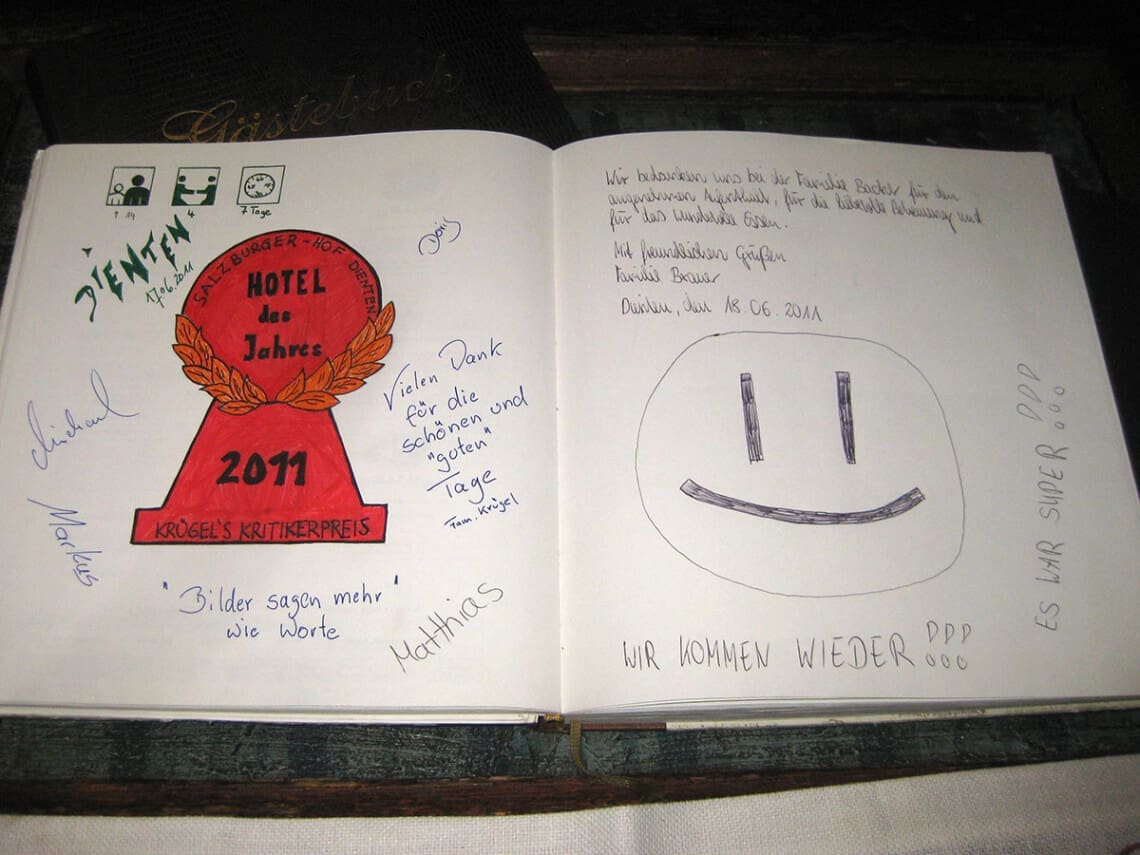 Gästebuch
4
7 Tage
DIENTEN
17.06.2011
SALZBURGER-HOF DIENTEN
HOTEL
des
Jahres
2011
KRÜGEL'S KRITIKERPREIS
Doris
Vielen Dank
für die
schönen und
"goten"
Tage
Fam. Krügel
Michael
Markus
"Bilder sagen mehr"
wie Worte
Matthias
Wir bedanken uns bei der Familie für den
angenehmen Aufenthalt, für die liebevolle und
für das wundervolle Essen.
Mit freundlichen Grüßen
Familie Brauer
Dienten, den 18.06.2011
WIR KOMMEN WIEDER !!!
ES WAR SUPER !!!